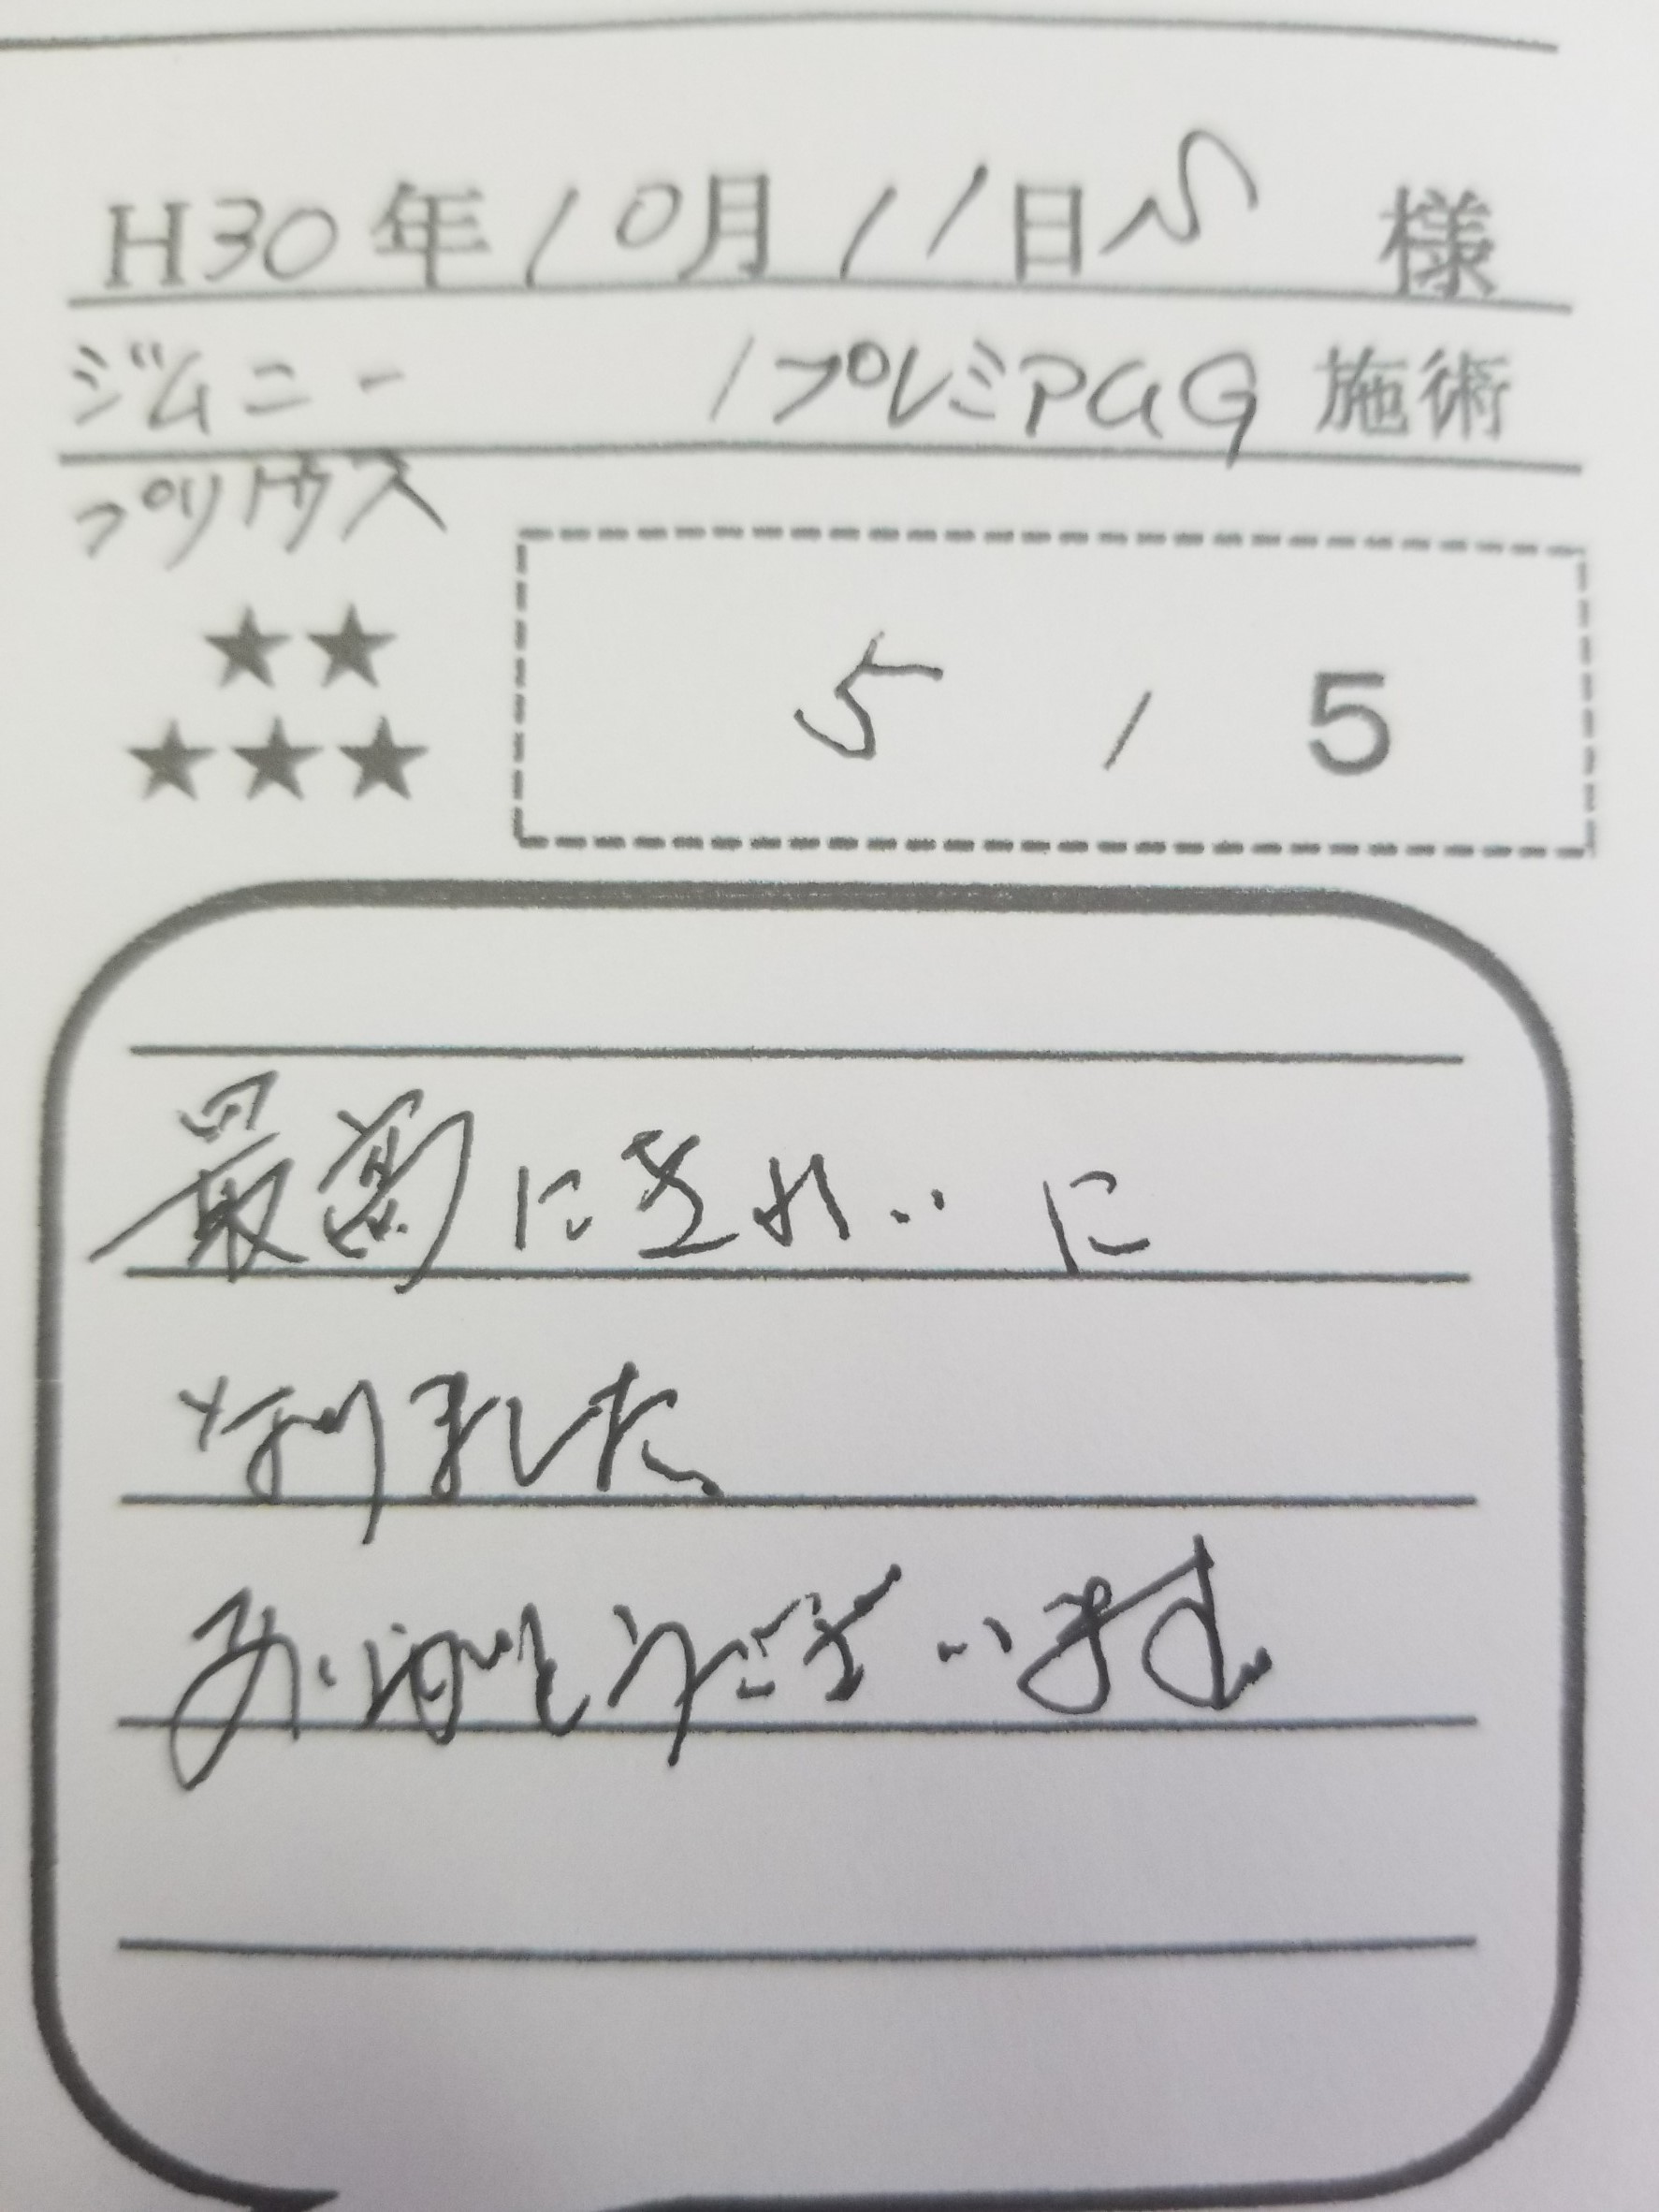 H30年10月11日 S 様
ジムニー /プレミアPGG 施術
プリウス
★★
★★★
5 / 5
最高にきれいに
なりました
ありがとうございます